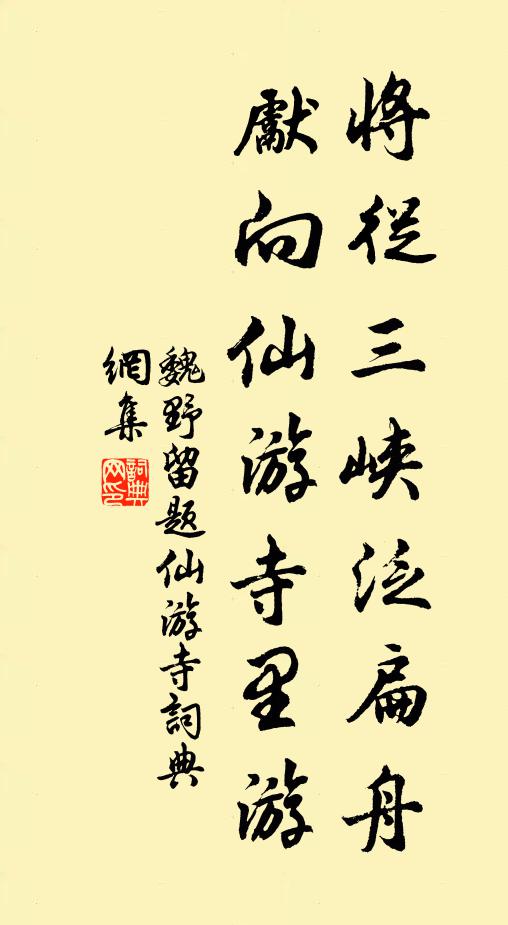 將從三峽泛扁舟
獻向仙游寺里游
魏野留題仙游寺詞典
網集
詞典网印